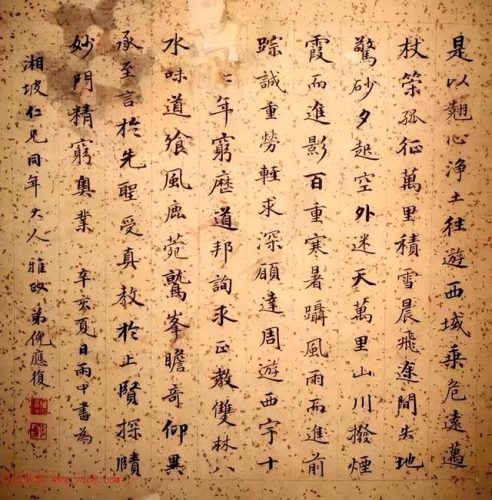 是以翹心浄土往遊西域乘危遠邁
杖策孤征萬里積雪晨飛途間失地
驚砂夕起空外迷天萬里山川撥煙
霞而進影百重寒暑躡風雨而進前
踪誠重勞輕求深願達周遊西宇十
年窮歷道邦詢求正教雙林八
水味道飡風鹿菀鷲峯瞻奇仰異
承至言於先聖受真教於上賢探賾
妙門精窮奧業 辛亥夏日雨中書為
湘坡仁兄同年大人雅政 弟倪應復